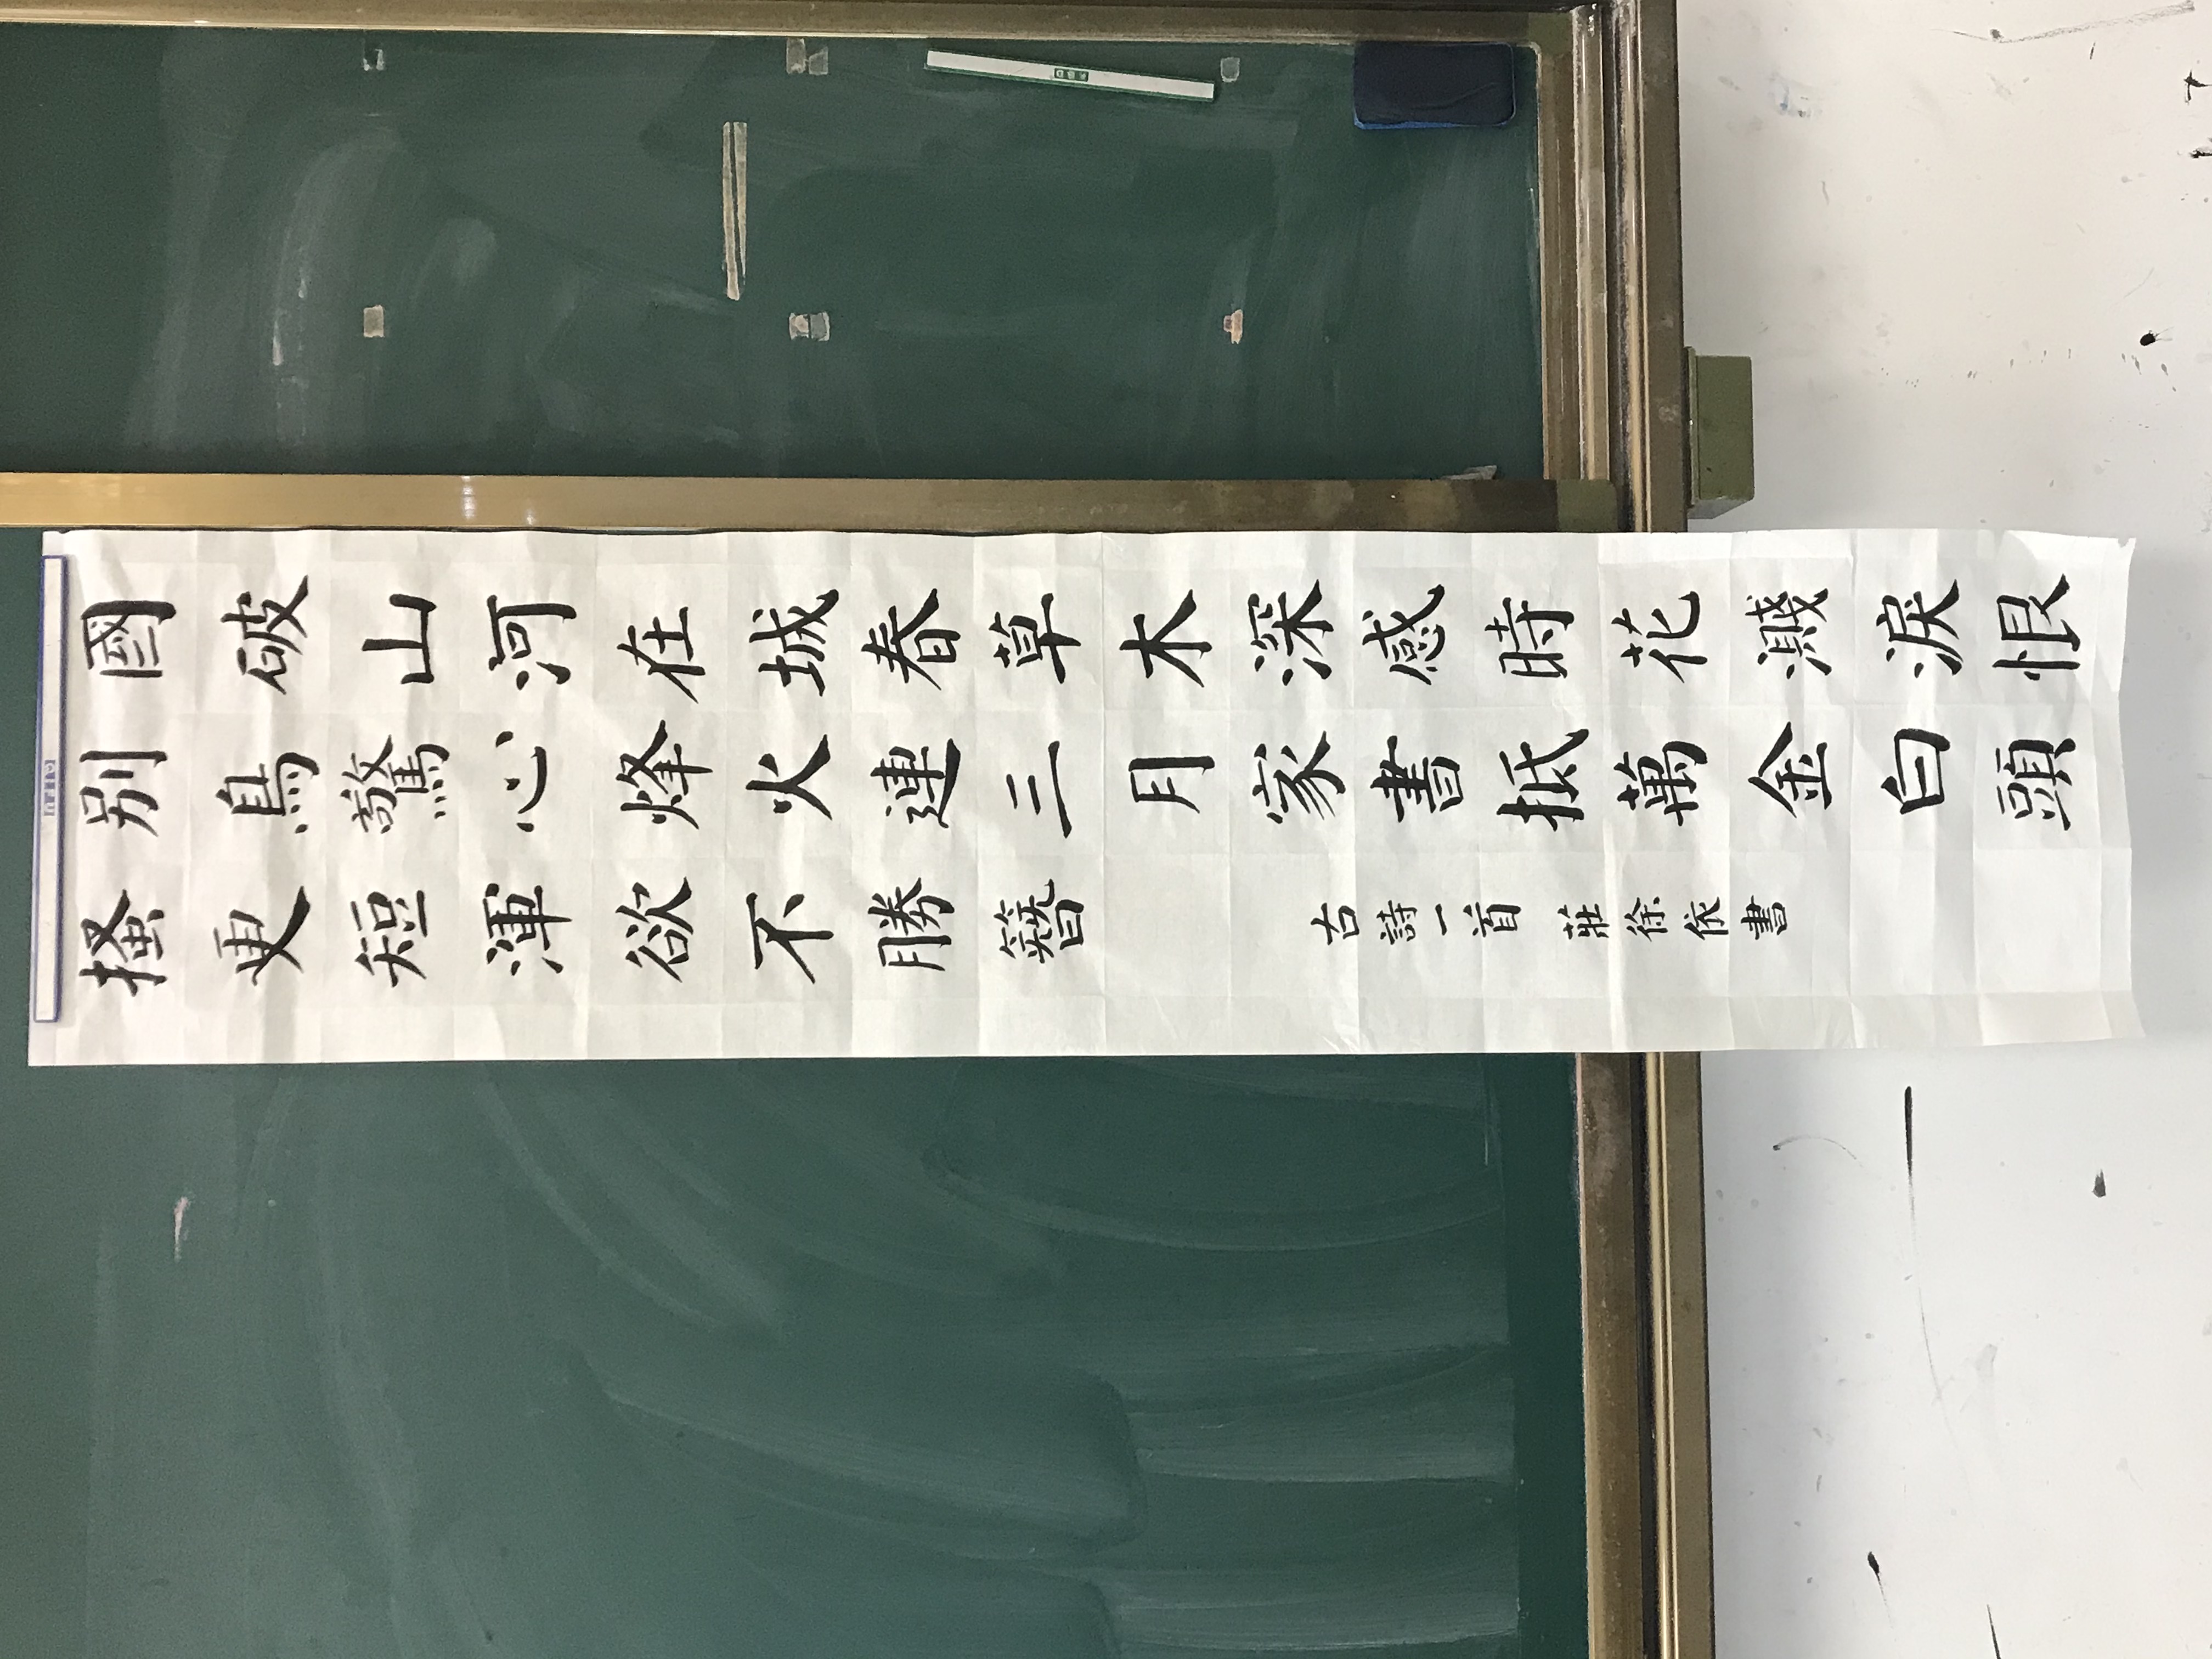 國破山河在城春草木深感時花濺淚恨
別鳥驚心烽火連三月家書抵萬金白頭
搔更短渾欲不勝簪
古詩一首 莊徐依書